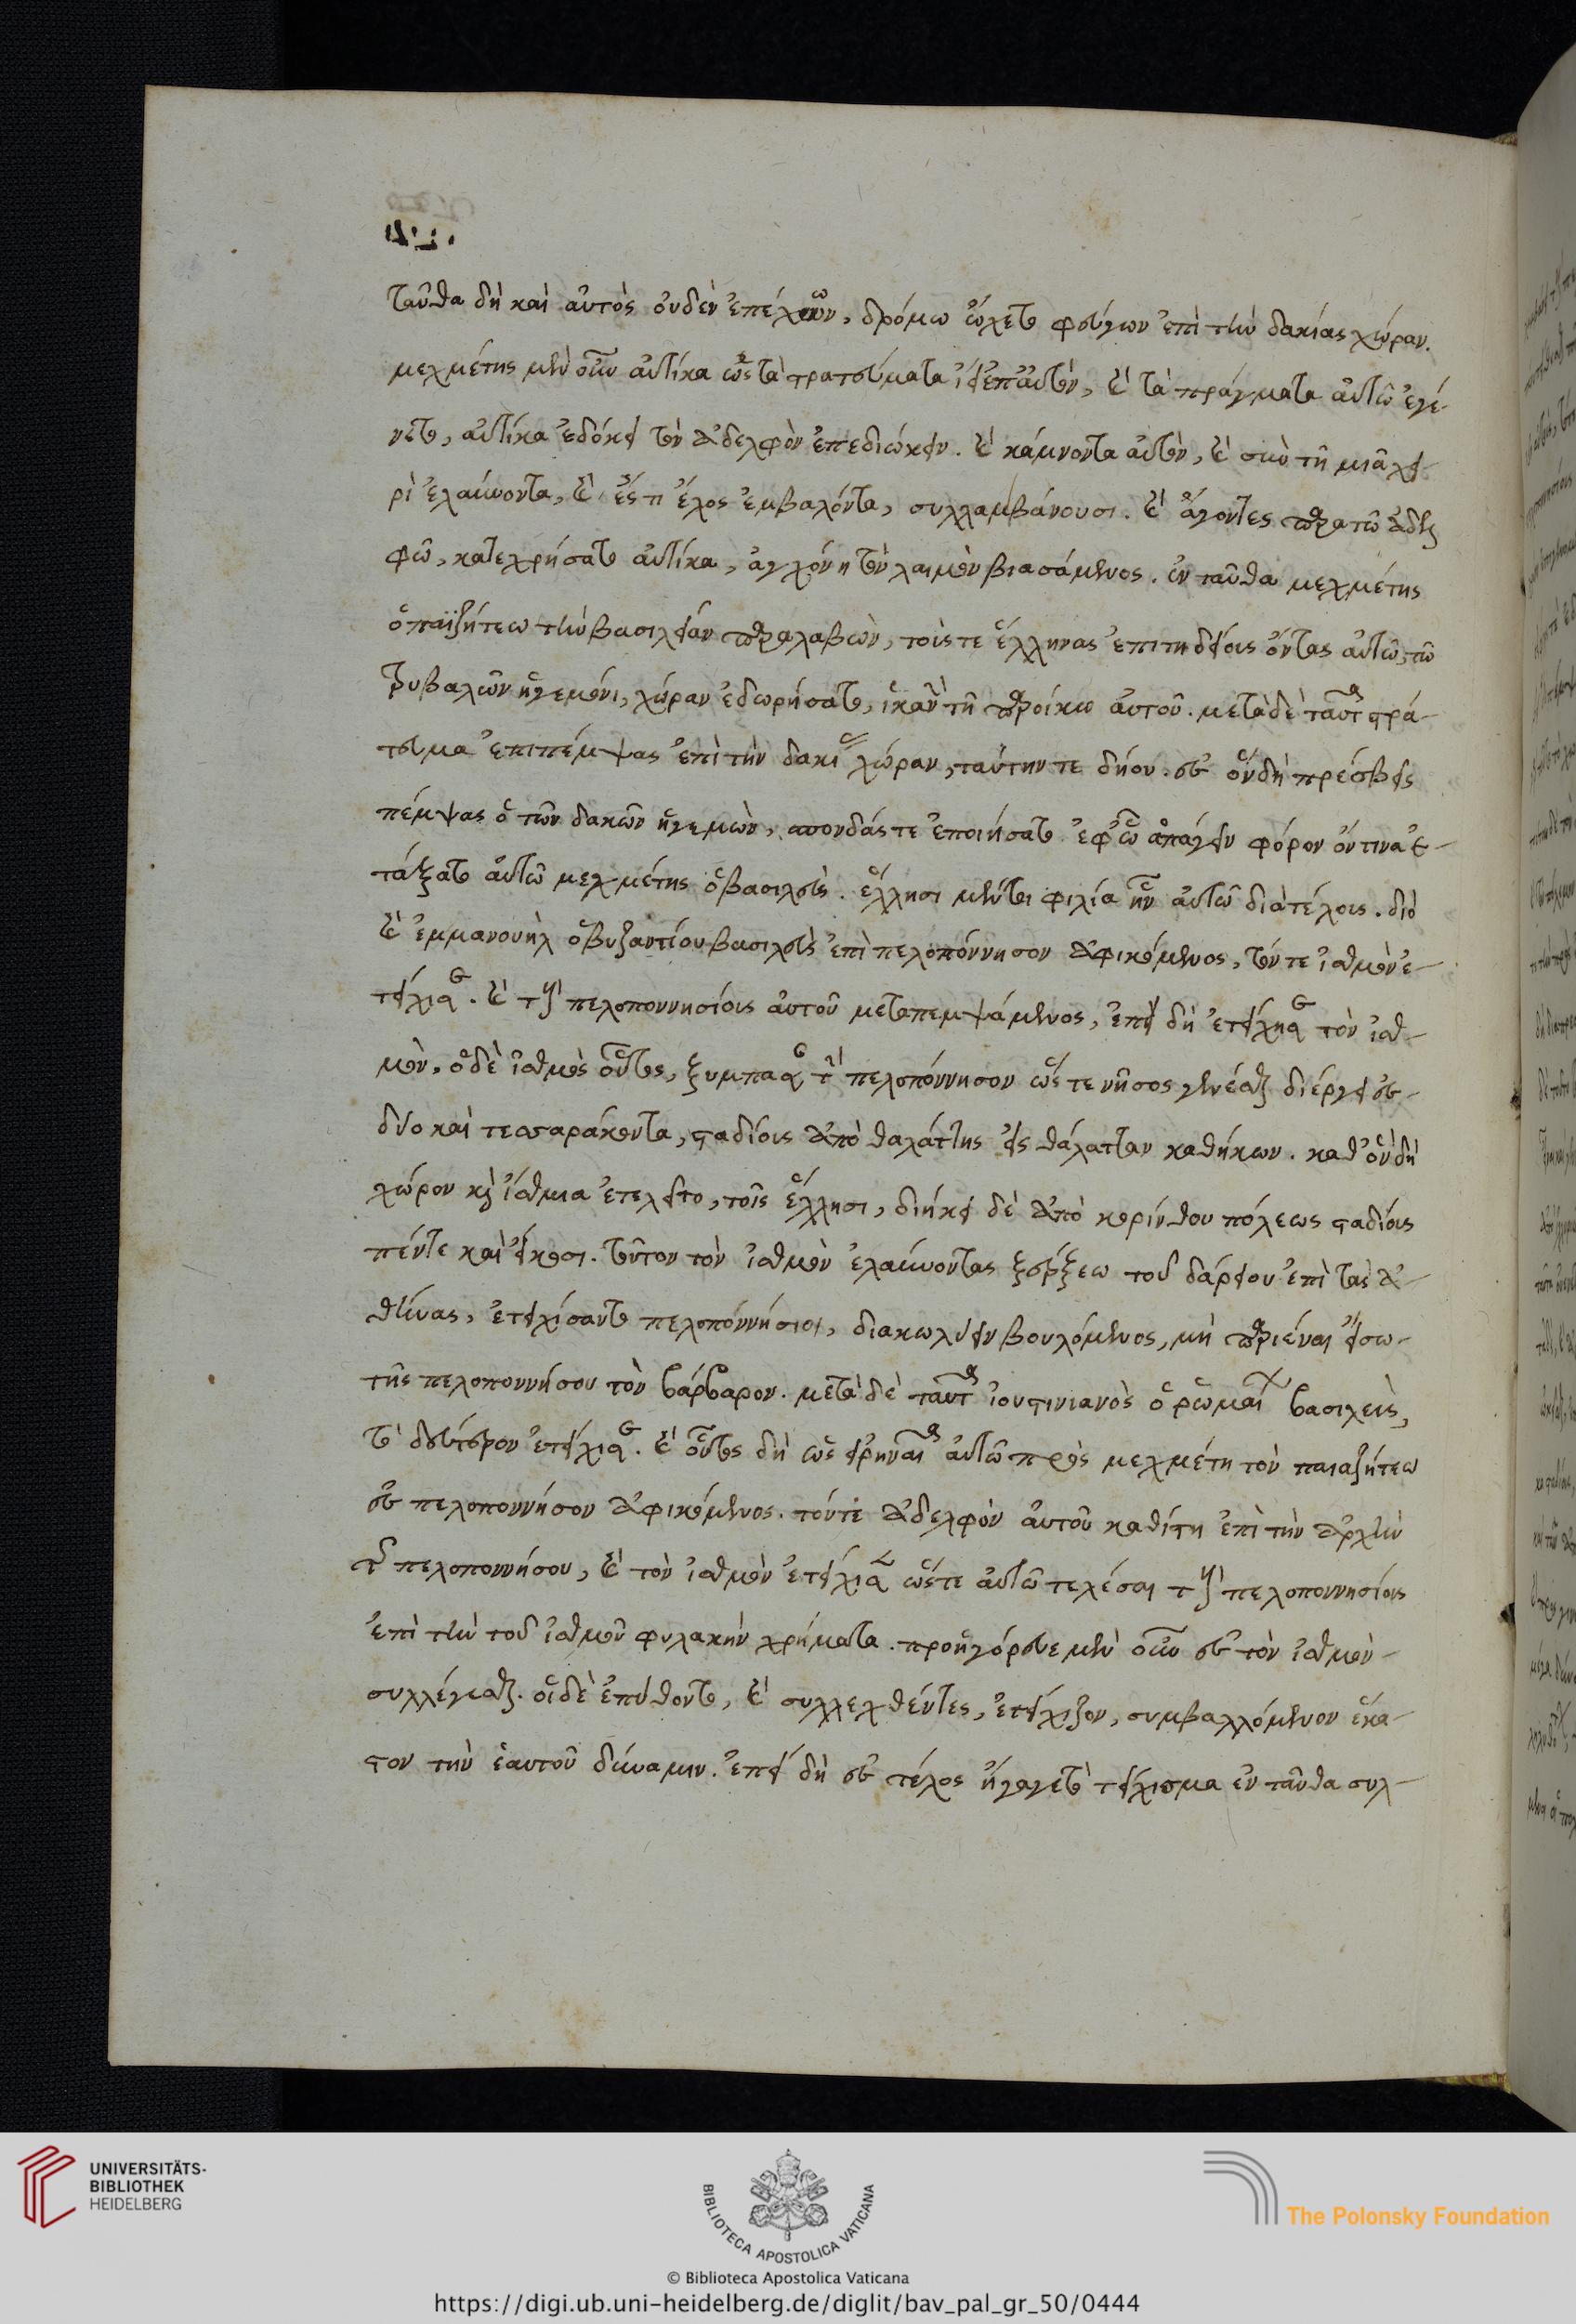 ταῦθα δὴ καὶ αὐτὸς οὐδὲν ἐπέχων, δρόμω ὤχετο φεύγων ἐπὶ τὴν δακίας χώραν.
μεχμέτης μὲν οὖν αὐτίκα ὡς τὰ στρατεύματα εἰ ἐπ αὐτὸν, καὶ τὰ πράγματα αὐτῶ ἐγέ-
νετο, αὐτίκα ἐδόκει τὸν ἀδελφὸν ἐπεδιώκειν. καὶ κάμνοντα αὐτὸν, καὶ σὺν τῆ μιᾶ χει-
ρὶ ἐλαύνοντα, καὶ ἔς τι ἕλος ἐμβαλόντα, συλλαμβάνουσι. καὶ ἄγοντες παρα τῶ ἀδελ
φῶ, κατεχρήσατο αὐτίκα, ἀγχόνη τὸν λαιμὸν βιασάμενος. ἐν ταῦθα μεχμέτης
ὁ παϊζήτεω τὴν βασιλείαν παραλαβὼν, τοῖς τε ἕλληνας ἐπιτηδείοις ὄντας αὐτῶ, τῶ
τριβαλῶν ἡγεμόνι, χώραν ἐδωρήσατο, ἱκανὴν τῆ παροίκω αὐτοῦ. μετὰ δὲ ταῦτα στρά-
τευμα ἐπιπέμψας ἐπὶ τὴν δακίας χώραν, ταύτην τε δήου. ἐς ὃν δὴ πρέσβεις
πέμψας ὁ τῶν δακῶν ἡγεμὼν, σπονδάς τε ἐποιήσατο ἐφ ὧ ἀπάγειν φόρον ὅντινα ἐ-
τάξατο αὐτῶ μεχμέτης ὁ βασιλεὺς. ἕλλησι μέντοι φιλία ἦν αὐτῶ διὰ τέλους. διὸ
καὶ ἐμμανουὴλ ὁ βυζαντίου βασιλεὺς ἐπὶ πελοπόννησον ἀφικόμενος, τόν τε ἰσθμὸν ἐ-
τείχισε. καὶ τοὺς πελοποννησίοις αὐτοῦ μεταπεμψάμενος, ἐπεὶ δὴ ἐτείχησε τὸν ἰσθ-
μὸν. ὁ δὲ ἰσθμὸς οὗτος, ξυμπασαν τὴν πελοπόννησον ὥς τε νῆσος γενέσθαι διέργει ἐς
δύο καὶ τεσσαράκοντα, σταδίοις ἀπὸ θαλάττης εἰς θάλατταν καθήκων. καθ ὃν δὴ
χῶρον καὶ ἴσθμια ἐτελεῖτο, τοῖς ἕλλησι, διήκει δὲ ἀπὸ κορίνθου πόλεως σταδίοις
πέντε καὶ εἴκοσι. τοῦτον τὸν ἰσθμὸν ἐλαύνοντας ξέρξεω τοῦ δάρείου ἐπὶ τὰς ἀ-
θήνας, ἐτειχίσαντο πελοπόννήσιοι, διακωλύειν βουλόμενος, μὴ παριέναι εἴσω-
τῆς πελοποννήσου τὸν βάρβαρον. μετὰ δὲ ταῦτα ἰουστινιανὸς ὁ ῥωμαίων βασιλεὺς,
τὸ δεύτερον ἐτείχισε. καὶ οὗτος δὴ ὡς εἰρήναια αὐτῶ πρὸς μεχμέτη τὸν παιαζήτεω
ἐς πελοποννήσον ἀφικόμενος. τόν τε ἀδελφὸν αὐτοῦ καθίστη ἐπὶ τὴν ἀρχὴν
τῆς πελοποννήσου, καὶ τὸν ἰσθμὸν ἐτείχισεν ὥστε αὐτῶ τελέσαι τοὺς πελοποννησίοις
ἐπὶ τὴν τοῦ ἰσθμοῦ φυλακὴν χρήματα. προηγόρευε μὲν οὖν ἐς τὸν ἰσθμὸν-
συλλέγεσθαι. οἱ δὲ ἐπείθοντο, καὶ συλλεχθέντες, ἐτείχιζον, συμβαλλόμενον ἕκα-
στον τὴν ἑαυτοῦ δύναμιν. ἐπεὶ δὴ ἐς τέλος ἠγάγετο τείχισμα ἐν ταῦθα συλ-
UNIVERSITÄTS-
BIBLIOTHEK
HEIDELBERG
BIBLIOTECA APOSTOLICA VATICANA
The Polonsky Foundation
© Biblioteca Apostolica Vaticana
https://digi.ub.uni-heidelberg.de/diglit/bav_pal_gr_50/0444